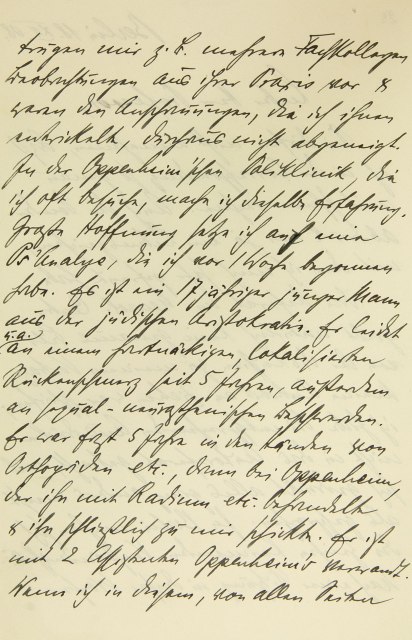 trugen mir z. B. mehrere Fachkollegen
Beobachtungen aus ihrer Praxis vor &
waren den Anschauungen, die ich ihnen
entwickelte, durchaus nicht abgeneigt.
In der Oppenheim'schen Poliklinik, die
ich oft besuche, mache ich dieselbe Erfahrung.
Große Hoffnung setze ich auf eine
Ps'Analyse, die ich vor 1 Woche begonnen
habe. Es ist ein 17jähriger junger Mann
aus der jüdischen Aristokratie. Er leidet
u. a.
an einem hartnäckigen, lokalisierten
Rückenschmerz seit 5 Jahren, außerdem
an sexual-neurasthenischen Beschwerden.
Er war erst 5 Jahre in den Händen von
Orthopäden etc., dann bei Oppenheim,
der ihn mit Radium etc. behandelte
& ihn schließlich zu mir schickte. Er ist
mit 2 Assistenten Oppenheim's verwandt.
Wenn ich in diesem, von allen Seiten